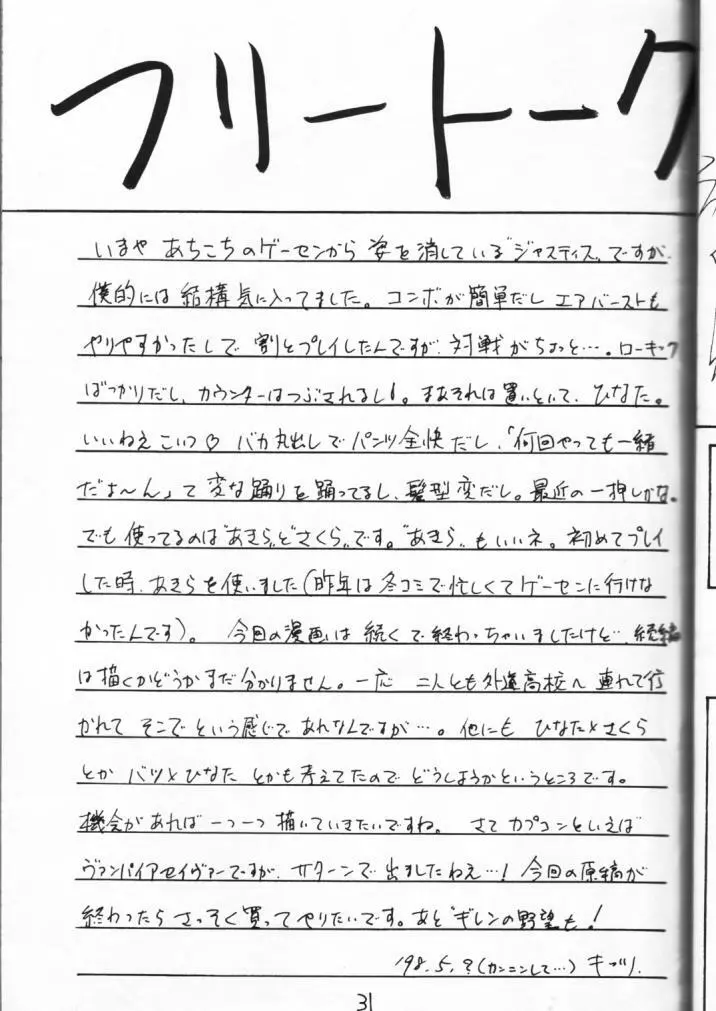 フリートーク
いまや あちこちのゲーセンから 姿を消している"ジャスティス"ですが、
僕的には 結構気に入ってました。コンボが簡単だし エアバーストも
やりやすかったしで 割とプレイしたんですが、対戦がちょっと…。ローキック
ばっかりだし、カウンターはつぶされるし!。まあそれは置いといて、ひなた。
いいねえこいつ♡ バカ丸出しで パンツ全快だし、「何回やっても一緒
だよ〜ん」て 変な踊りを踊ってるし、髪型変だし。最近の一押しかな。
でも使ってるのは"あきら"と"さくら"です。"あきら"もいいネ。初めてプレイ
した時、あきらを使いました(昨年は冬コミで忙しくてゲーセンに行けな
かったんです)。 今回の漫画は 続くで終わっちゃいましたけど、続編
は描くかどうかまだ分かりません。一応 二人とも外道高校へ 連れて行
かれて そこでという感じで あれなんですが…。他にも ひなた×さくら
とか バツ×ひなた とかも考えてたので どうしようかというところです。
機会があれば 一つ一つ 描いていきたいですね。 さて カプコンといえば
ヴァンパイアセイヴァーですが、サターンで 出ましたねえ…! 今回の原稿が
終わったら さっそく買ってやりたいです。あと"ギレンの野望"も!
'98.5.?(カンニンして…)
31